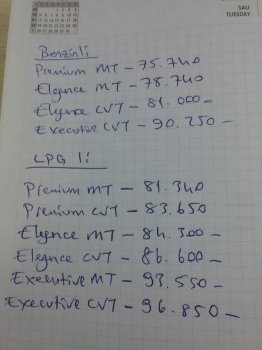 SALI
TUESDAY
Benzinli
Premium MT - 75.740
Elegence MT - 78.740
Elegence CVT - 81.000 -
Executive CVT - 90.250 -
LPG li
Premium MT - 81.340
Premium CVT - 83.650
Elegence MT - 84.300 -
Elegence CVT - 86.600 -
Executive MT - 93.550 -
Executive CVT - 96.850 -